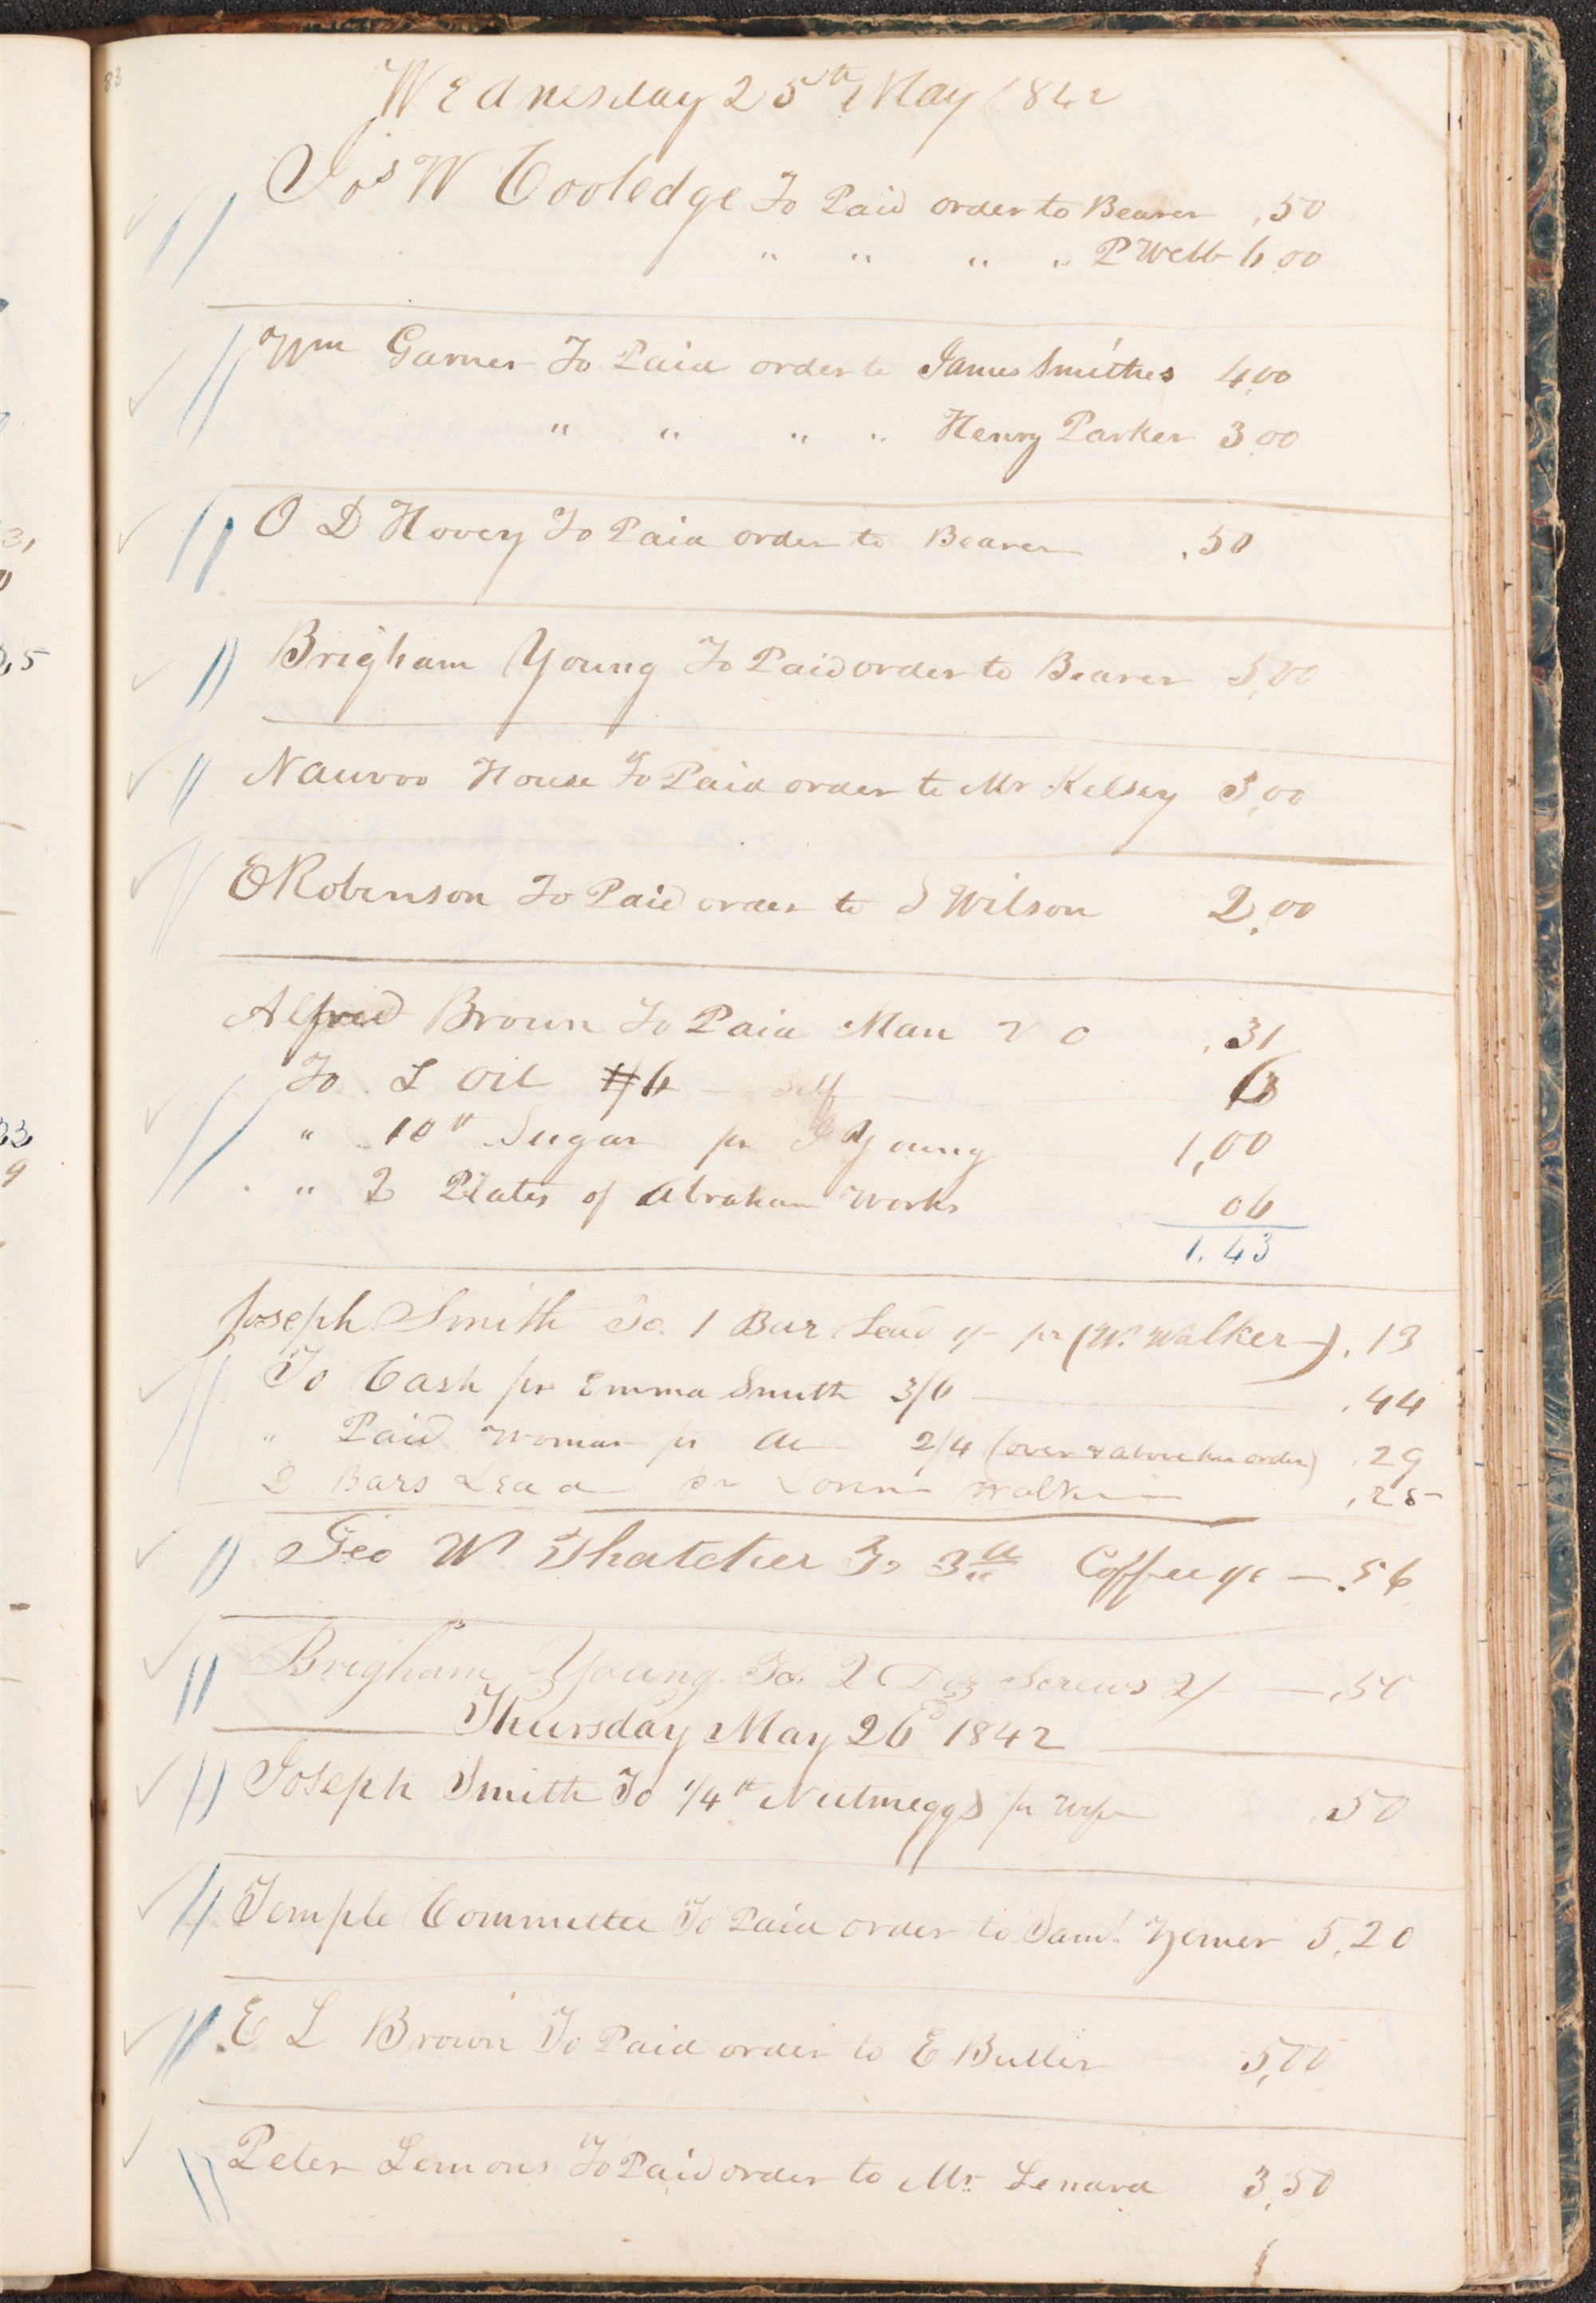 83
Wednesday 25th May 1842
Jos W Cooledge To Paid order to Bearer .50
" " " " P Webb 6.00
Wm Garner To Paid order to James Smithes 4.00
" " " " Henry Parker 3.00
O D Hovey To Paid order to Bearer .50
Brigham Young To Paid order to Bearer 5,00
Nauvoo House To Paid order to Mr Kelsey 3,00
E Robinson To Paid order to S Wilson 2,00
Alfred Brown To Paid Man .31
To L Oil /6 - Self 6
" 10 tt Sugar pr Young 1,00
" 2 Plates of Abraham Works 06
1.43
Joseph Smith To. 1 Bar Lead pr (W. Walker) .13
To Cash pr Emma Smith 3/6 .44
" Paid Woman pr do 2/4 (over & above her order) .29
2 Bars Lead pr Lorin Walker .25
Geo W Thatcher To 3 tt Coffee — .56
Brigham Young To. 2 Doz Screws 2/ — .50
Thursday May 26 1842
Joseph Smith To 1/4 tt Nutmeggs pr Wife .50
Temple Committee To Paid order to Saml. 5.20
E L Brown To Paid order to E Butler 5,00
Peter Lemons To Paid order to Mr. Lenard 3,50